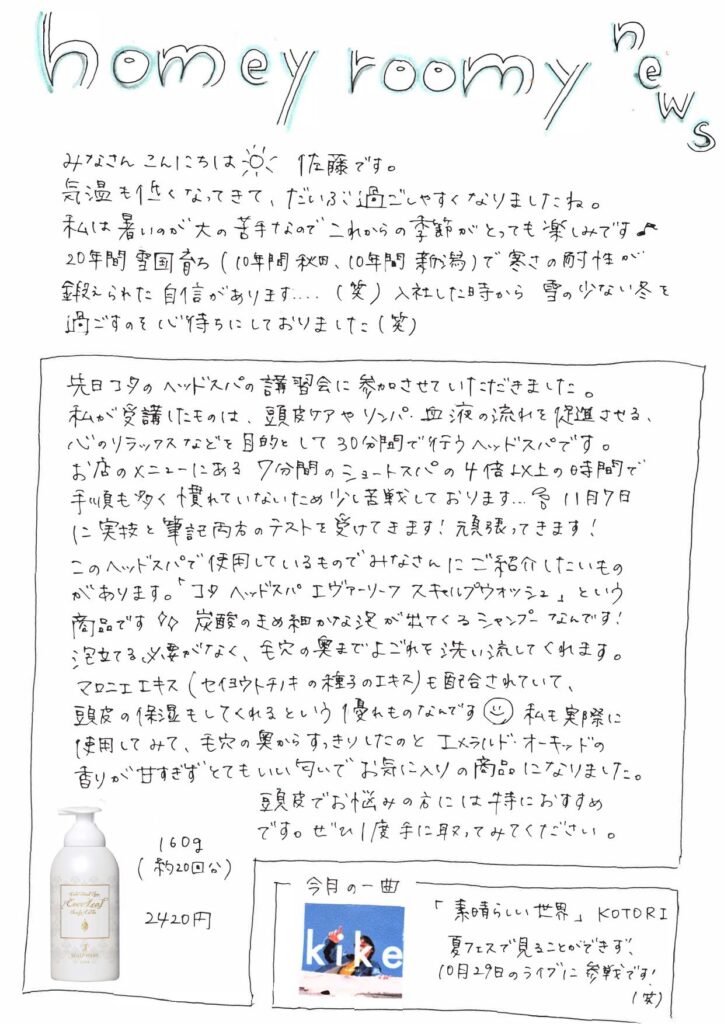 homey roomy news
みなさん こんにちは 佐藤です。
気温も低くなってきて、だいぶ過ごしやすくなりましたね。
私は暑いのが大の苦手なので これからの季節がとっても楽しみです♪
20年間 雪国育ち (10年間 秋田、10年間 新潟) で 寒さの耐性が
鍛えられた 自信があります.... (笑) 入社した時から 雪の少ない冬を
過ごすのを 心待ちにしておりました (笑)
先日コタの ヘッドスパの 講習会に 参加させていただきました。
私が受講したものは、頭皮ケアや リンパ・血液の流れを促進させる、
心のリラックスなどを目的として 30分間で行うヘッドスパです。
お店のメニューにある 7分間の ショートスパの 4倍以上の時間で
手順も多く 慣れていないため 少し苦戦しております... 11月7日
に 実技と筆記両方のテストを受けてきます! 頑張ってきます!
このヘッドスパで使用しているもので みなさんに ご紹介したいもの
があります。「コタ ヘッドスパ エヴァーリーフ スキャルプウォッシュ」という
商品です 炭酸のきめ細かな泡が出てくる シャンプーなんです!
泡立てる必要がなく、毛穴の奥まで よごれを洗い流してくれます。
マロニエエキス (セイヨウトチノキの種子のエキス) も配合されていて、
頭皮の保湿もしてくれるという 優れものなんです 私も実際に
使用してみて、毛穴の奥からすっきりしたのと エメラルド・オーキッドの
香りが甘すぎず とてもいい匂いで お気に入りの商品になりました。
頭皮でお悩みの方には 特におすすめ
です。ぜひ1度 手に取ってみてください。
160g
(約20回分)
2420円
今月の一曲
kike
「素晴らしい世界」 KOTORI
夏フェスで見ることができず、
10月29日のライブに 参戦です!
(笑)